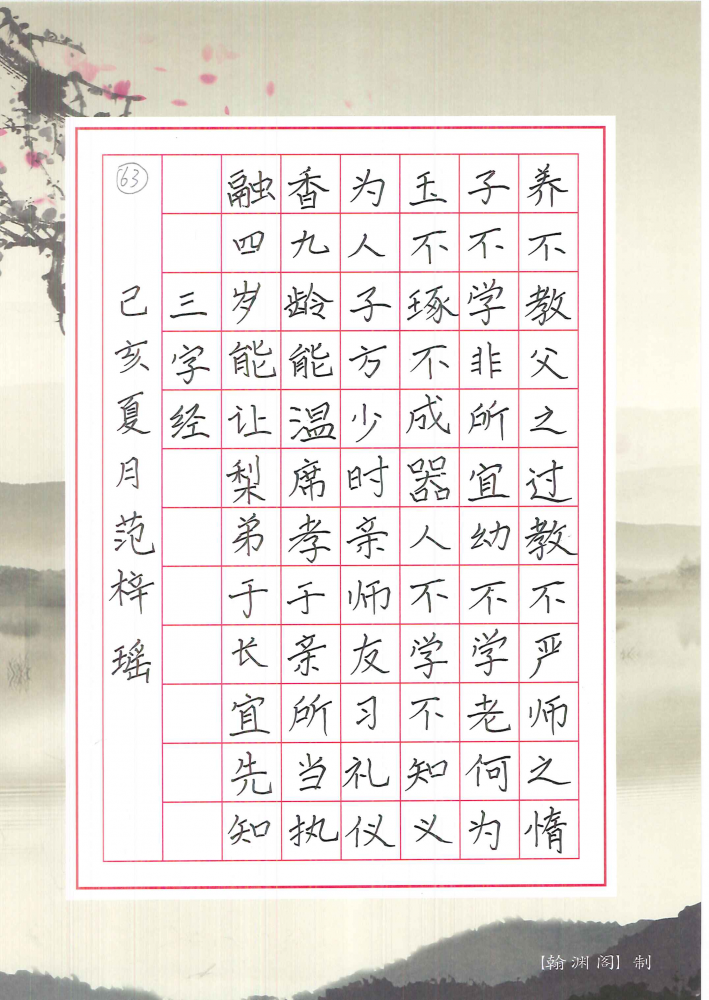 养不教父之过教不严师之惰
子不学非所宜幼不学老何为
玉不琢不成器人不学不知义
为人子方少时亲师友习礼仪
香九龄能温席孝于亲所当执
融四岁能让梨弟于长宜先知
三字经
63
己亥夏月范梓瑶
【翰渊阁】制